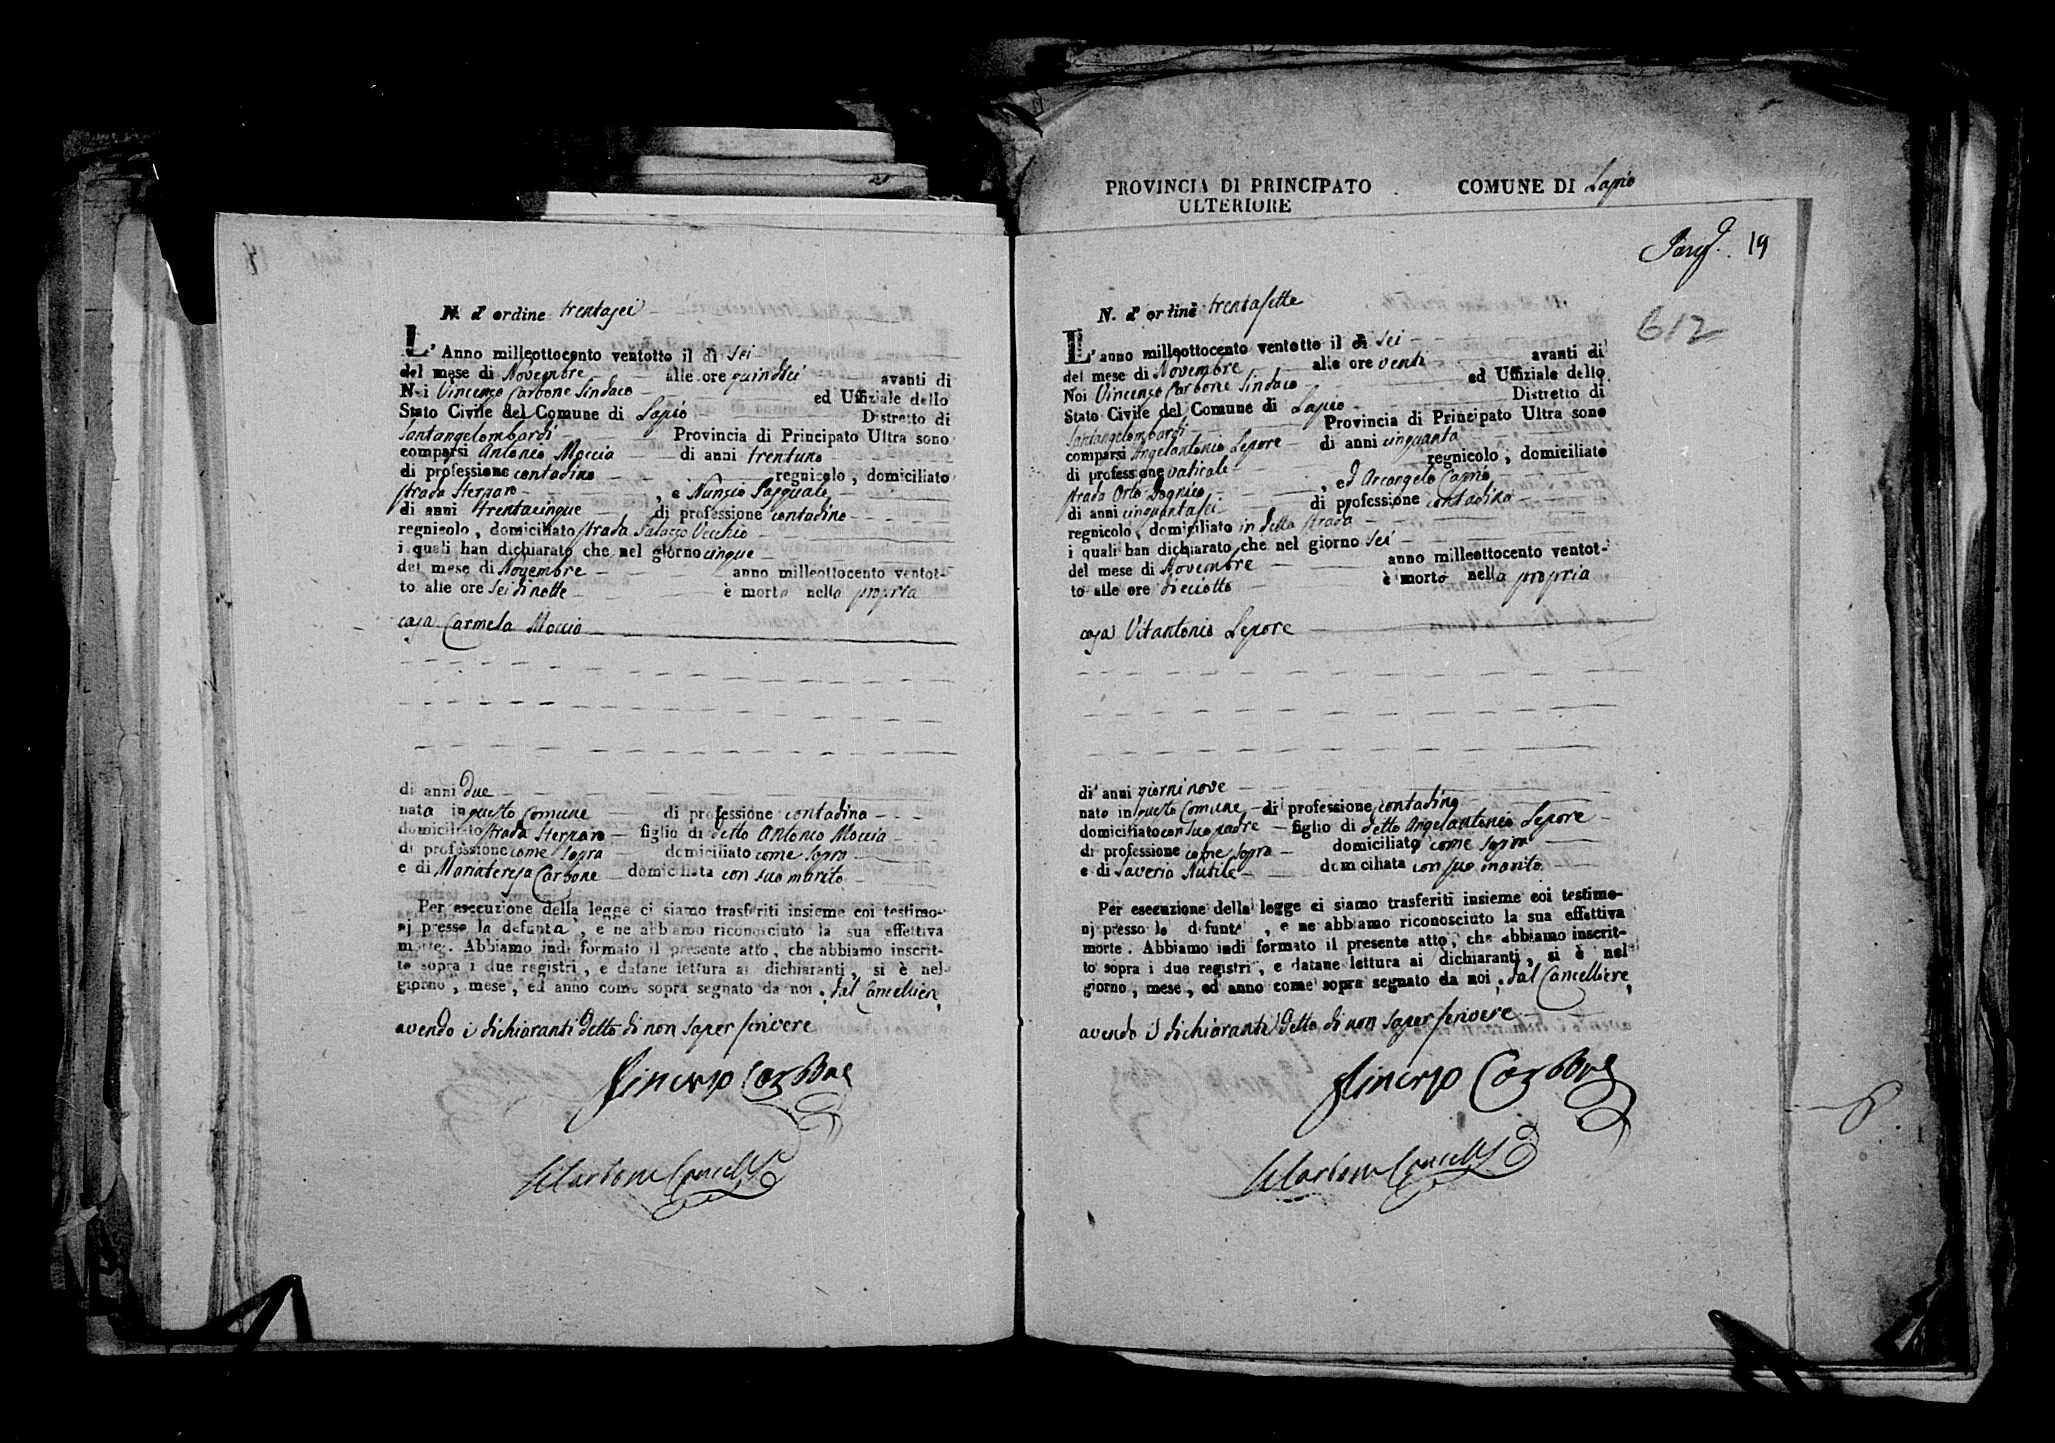 N. d' ordine trentasei
L' Anno milleottocento ventotto il dì sei
del mese di Novembre alle ore quindici avanti di
Noi Vincenzo Carbone Sindaco ed Uffiziale dello
Stato Civile del Comune di Lapio Distretto di
Santangelombardi Provincia di Principato Ultra sono
comparsi Antonio Moccia di anni trentuno
di professione contadino regnicolo, domiciliato
strada Sterparo, e Nunzio Pasquale
di anni trentacinque di professione contadino
regnicolo, domiciliato strada Palazzo Vecchio
i quali han dichiarato che nel giorno cinque
del mese di Novembre anno milleottocento ventot-
to alle ore sei di notte è morta nella propria
casa Carmela Moccia
di anni due
nata in questo Comune di professione contadina
domiciliata strada Sterparo figlio di detto Antonio Moccia
di professione come sopra domiciliato come sopra
e di Mariateresa Carbone domiciliata con suo marito
Per esecuzione della legge ci siamo trasferiti insieme coi testimo-
nj presso la defunta, e ne abbiamo riconosciuto la sua effettiva
morte. Abbiamo indi formato il presente atto, che abbiamo inscrit-
to sopra i due registri, e datane lettura ai dichiaranti, si è nel
giorno, mese, ed anno come sopra segnato da noi, dal Cancelliere,
avendo i dichiaranti detto di non saper scrivere
Vincenzo Carbone
Carbone Cancell.
PROVINCIA DI PRINCIPATO COMUNE DI Lapio
ULTERIORE
19
612
N. d' ordine trentasette
L' anno milleottocento ventotto il dì sei
del mese di Novembre alle ore venti avanti di
Noi Vincenzo Carbone Sindaco ed Uffiziale dello
Stato Civile del Comune di Lapio Distretto di
Santangelombardi Provincia di Principato Ultra sono
comparsi Angelantonio Lepore di anni cinquanta
di professione vaticale regnicolo, domiciliato
strada Orto, ed Arcangelo Caprio
di anni cinquantasei di professione contadino
regnicolo, domiciliato in detta strada
i quali han dichiarato che nel giorno sei
del mese di Novembre anno milleottocento ventot-
to alle ore dieciotto è morto nella propria
casa Vitantonio Lepore
di anni giorni nove
nato in questo Comune di professione contadino
domiciliato con suo padre figlio di detto Angelantonio Lepore
di professione come sopra domiciliato come sopra
e di Saveria Nutile domiciliata con suo marito
Per esecuzione della legge ci siamo trasferiti insieme coi testimo-
nj presso lo defunto, e ne abbiamo riconosciuto la sua effettiva
morte. Abbiamo indi formato il presente atto, che abbiamo inscrit-
to sopra i due registri, e datane lettura ai dichiaranti, si è nel
giorno, mese, ed anno come sopra segnato da noi, dal Cancelliere,
avendo i dichiaranti detto di non saper scrivere
Vincenzo Carbone
Carbone Cancell.